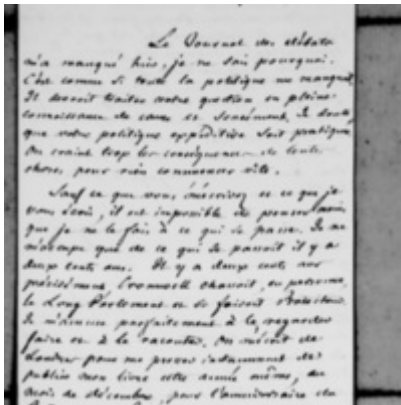 Le Journal des débats
m'a manqué hier, je ne sais pourquoi.
C'est comme si toute la politique me manquait.
Il devroit traiter votre question en pleine
connaissance de cause et sincèrement. Je doute
que votre politique expéditive soit pratiquée.
On craint trop les conséquences de toute
chose, pour rien commencer vite.
Sauf ce que vous m'écrivez et ce que je
vous écris, il est impossible de penser moins
que je ne le fais à ce qui se passe. Je ne
m'occupe que de ce qui se passoit il y a
deux cents ans. Il y a deux cents ans
précisément, Cromwell chassoit, en personne,
le Long Parlement et se faisoit Protecteur.
Je m'amuse parfaitement à le regarder
faire et à le raconter. On m'écrit de
Londres pour me presser instamment de
publier mon livre cette année même, au
mois de décembre, pour l'anniversaire du